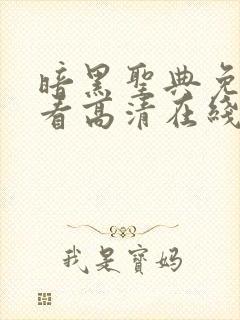 暗黑聖典免
看高清在綫
我是寶媽